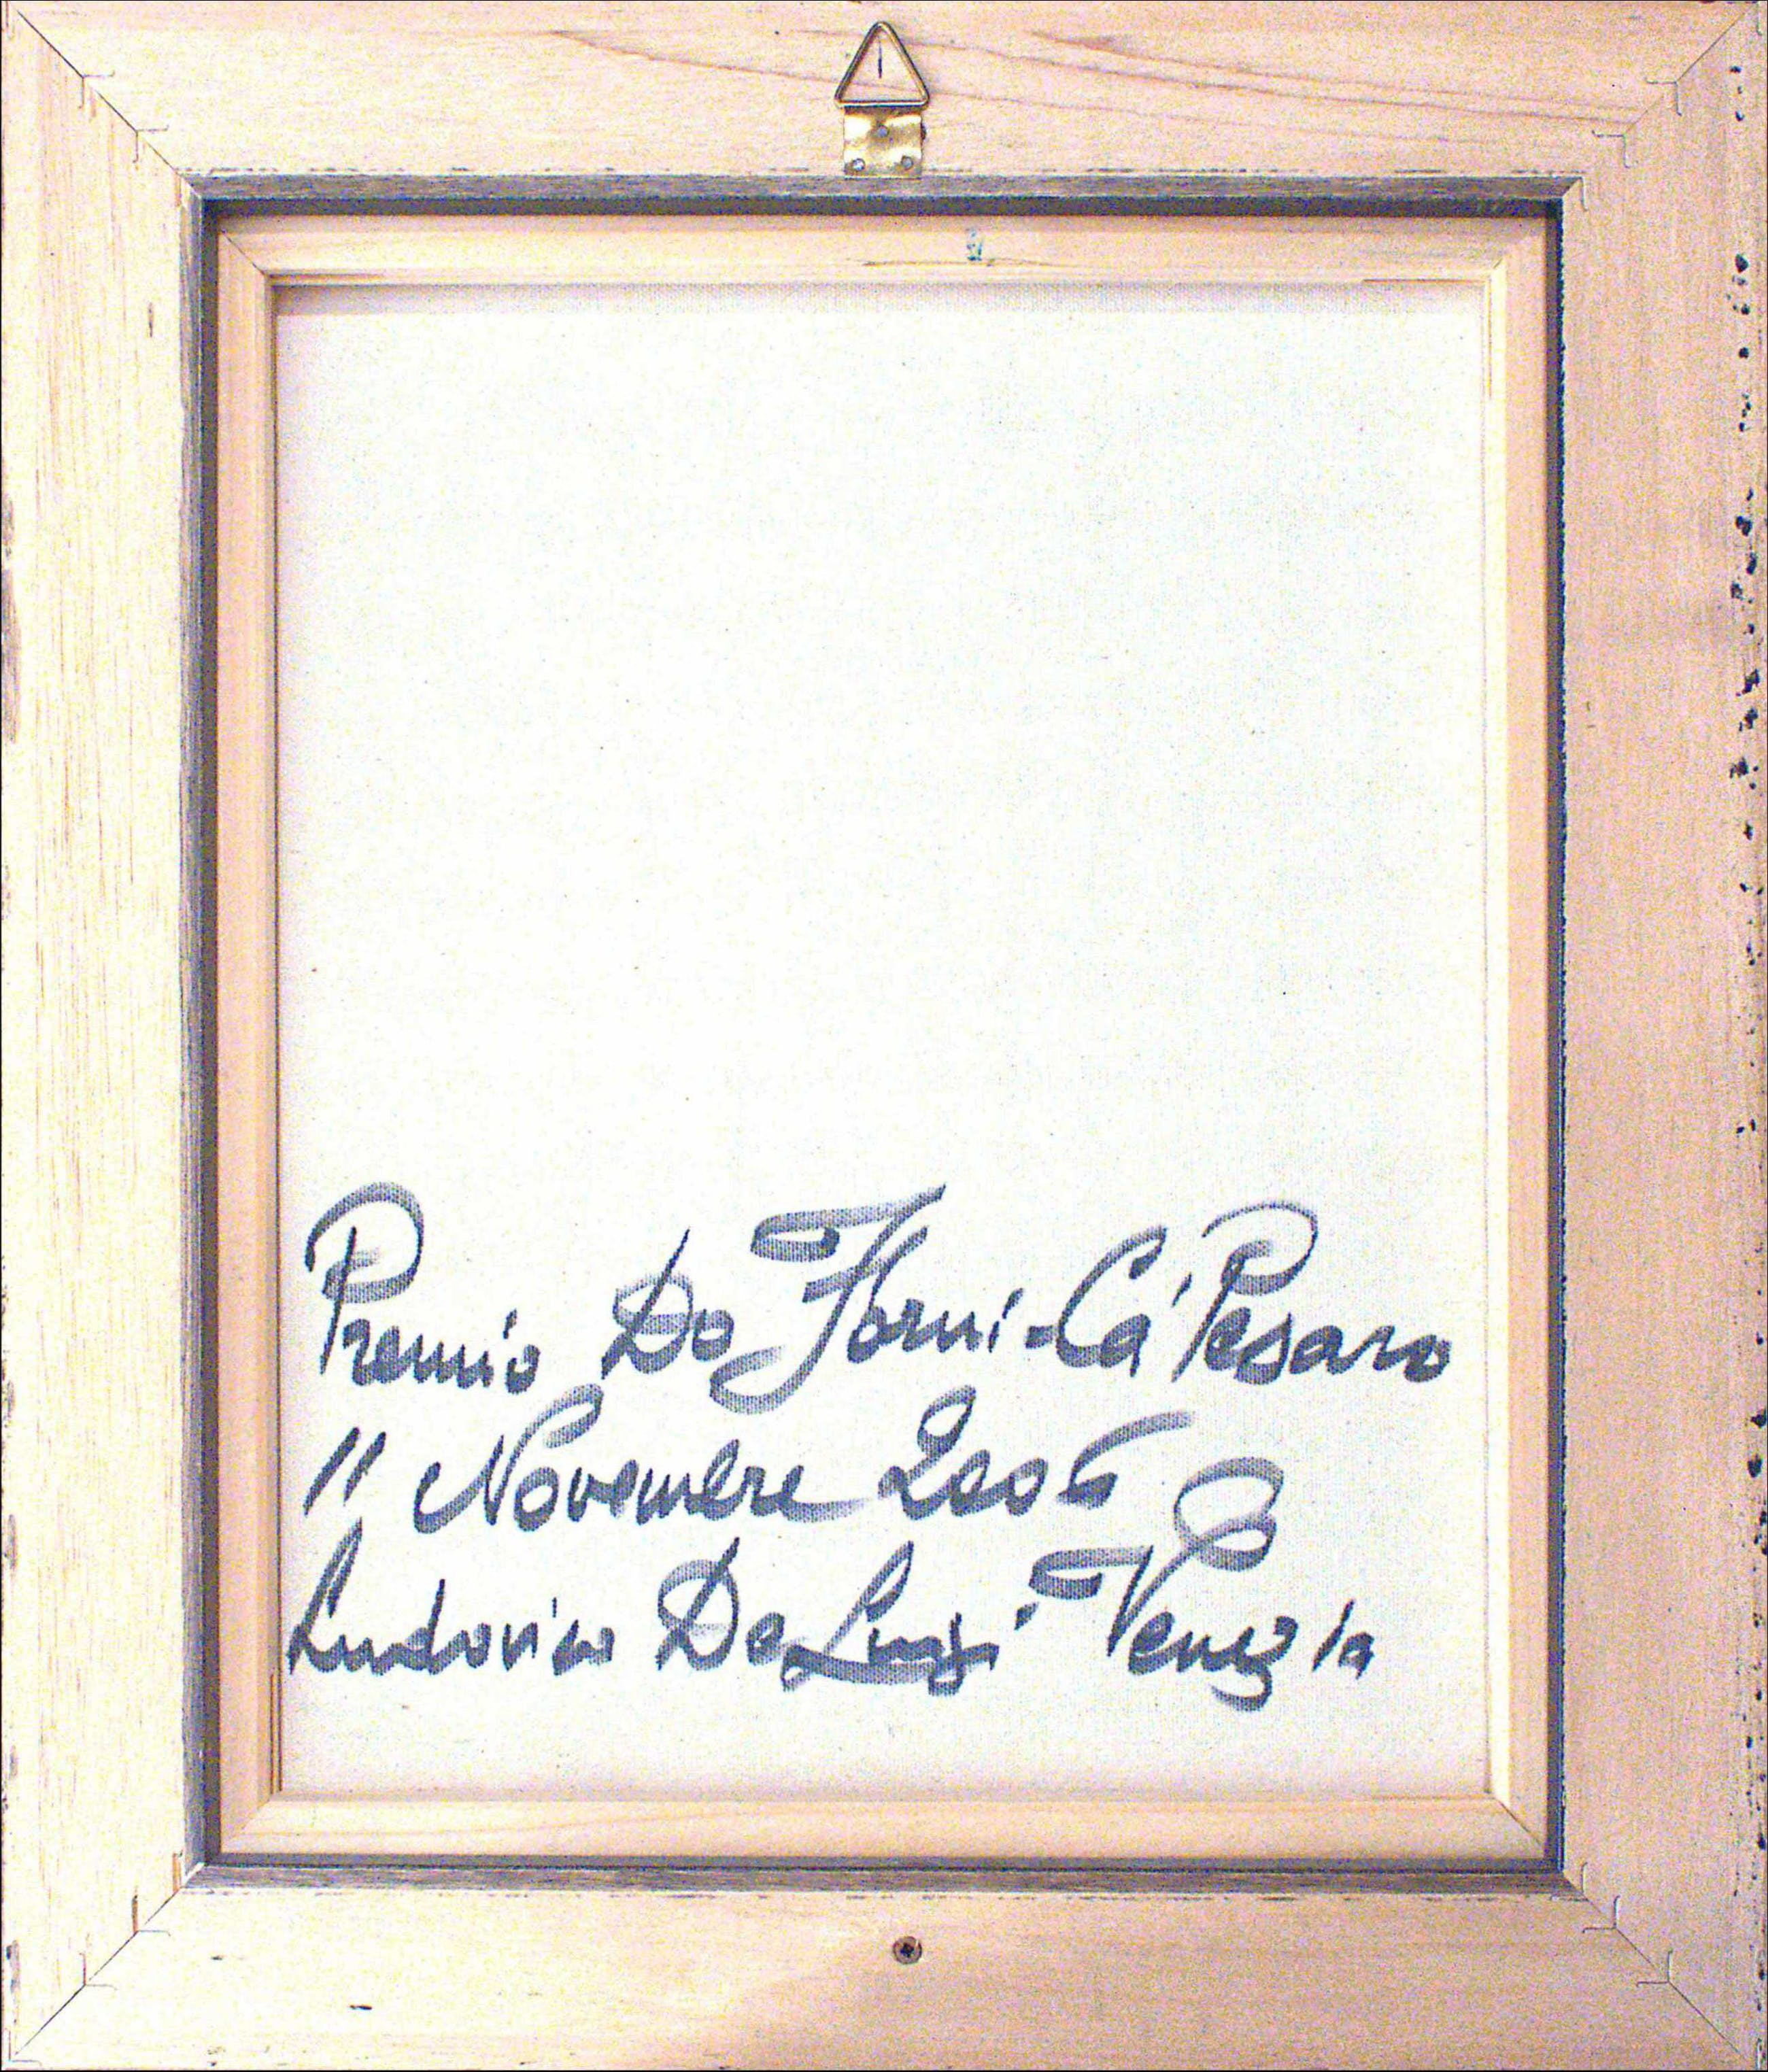 Premio Do Forni - Cà Pesaro
11 Novembre 2006
Ludovico De Luigi Venezia